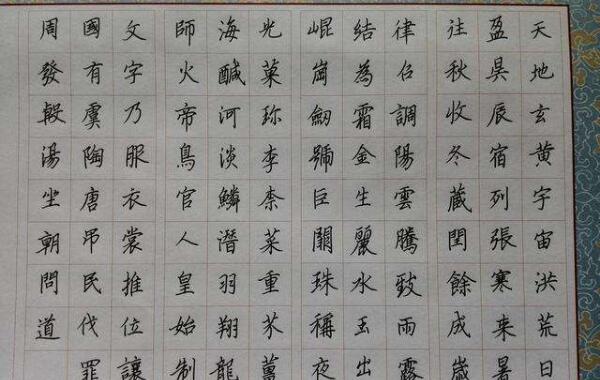 天地玄黃宇宙洪荒日
盈昃辰宿列張寒来暑
往秋收冬藏閏餘成歲
律召調陽雲騰致雨露
結為霜金生麗水玉出
崐崗劒號巨闕珠稱夜
光菓珍李柰菜重芥薑
海醎河淡鱗潛羽翔龍
師火帝鳥官人皇始制
文字乃服衣裳推位讓
國有虞陶唐吊民伐罪
周發殷湯坐朝問道